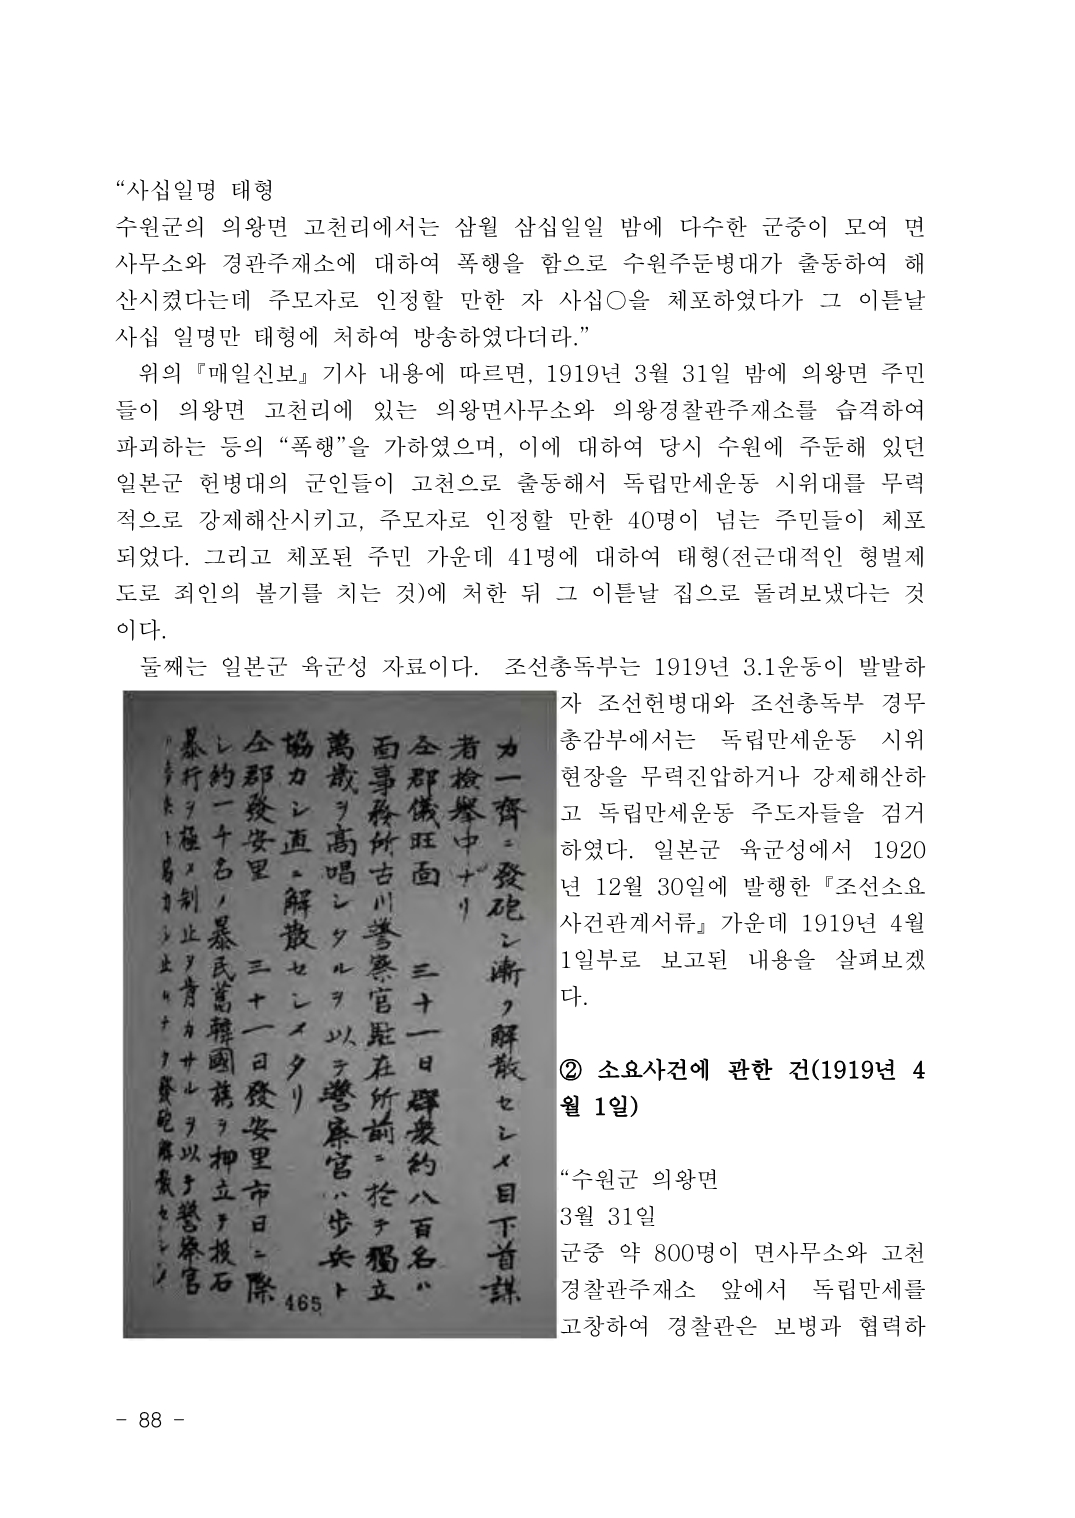 “사십일명 태형
수원군의 의왕면 고천리에서는 삼월 삼십일일 밤에 다수한 군중이 모여 면
사무소와 경관주재소에 대하여 폭행을 함으로 수원주둔병대가 출동하여 해
산시켰다는데 주모자로 인정할 만한 자 사십○을 체포하였다가 그 이튿날
사십 일명만 태형에 처하여 방송하였다더라.”
위의『매일신보』기사 내용에 따르면, 1919년 3월 31일 밤에 의왕면 주민
들이 의왕면 고천리에 있는 의왕면사무소와 의왕경찰관주재소를 습격하여
파괴하는 등의 “폭행”을 가하였으며, 이에 대하여 당시 수원에 주둔해 있던
일본군 헌병대의 군인들이 고천으로 출동해서 독립만세운동 시위대를 무력
적으로 강제해산시키고, 주모자로 인정할 만한 40명이 넘는 주민들이 체포
되었다. 그리고 체포된 주민 가운데 41명에 대하여 태형(전근대적인 형벌제
도로 죄인의 볼기를 치는 것)에 처한 뒤 그 이튿날 집으로 돌려보냈다는 것
이다.
둘째는 일본군 육군성 자료이다. 조선총독부는 1919년 3.1운동이 발발하
자 조선헌병대와 조선총독부 경무
총감부에서는 독립만세운동 시위
현장을 무력진압하거나 강제해산하
고 독립만세운동 주도자들을 검거
하였다. 일본군 육군성에서 1920
년 12월 30일에 발행한『조선소요
사건관계서류』가운데 1919년 4월
1일부로 보고된 내용을 살펴보겠
다.
② 소요사건에 관한 건(1919년 4
월 1일)
“수원군 의왕면
3월 31일
군중 약 800명이 면사무소와 고천
경찰관주재소 앞에서 독립만세를
고창하여 경찰관은 보병과 협력하
カ一齊ニ發砲シ漸ク解散セシメ目下首謀
者檢擧中ナリ
仝郡儀旺面 三十一日群衆約八百名ハ
面事務所古川警察官駐在所前ニ於テ獨立
萬歳ヲ高唱シタルヲ以テ警察官ハ歩兵ト
協力シ直ニ解散セシメタリ
仝郡發安里 三十一日發安里市日ニ際
シ約一千名ノ暴民舊韓國旗ヲ押立テ投石
暴行ヲ極メ制止ヲ肯カサルヲ以テ警察官
465
- 88 -